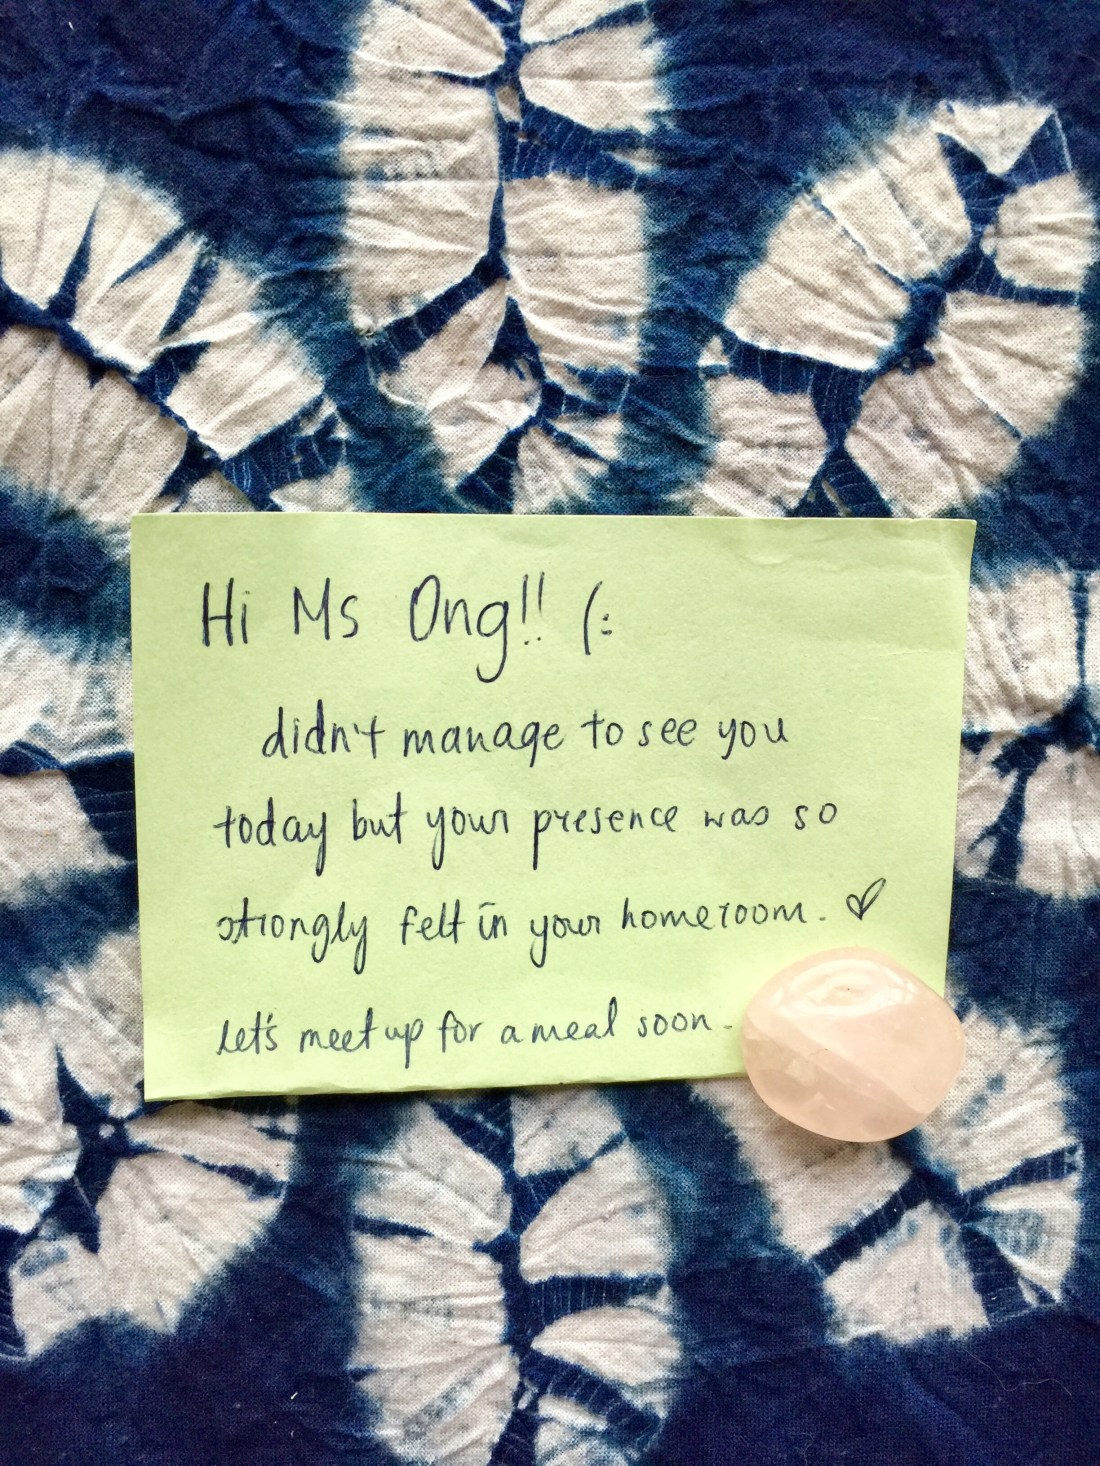 Hi Ms Ong!! (:
didn't manage to see you
today but your presence was so
strongly felt in your homeroom. ♡
let's meet up for a meal soon.